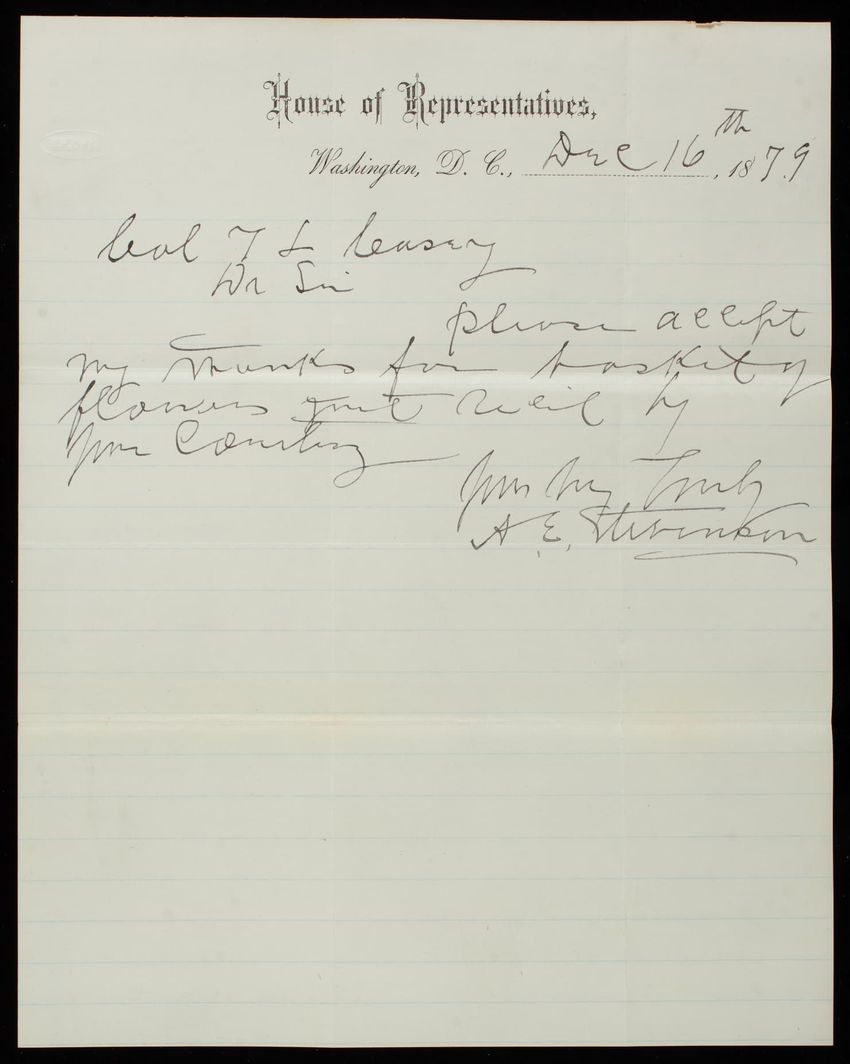 House of Representatives,
Washington, D. C., Dec 16th, 1879
Col T L Casey
Dr Sir
Please accept
my thanks for basket of
flowers just recd by
your Courtesy
Yours very Truly
A. E. Stevenson